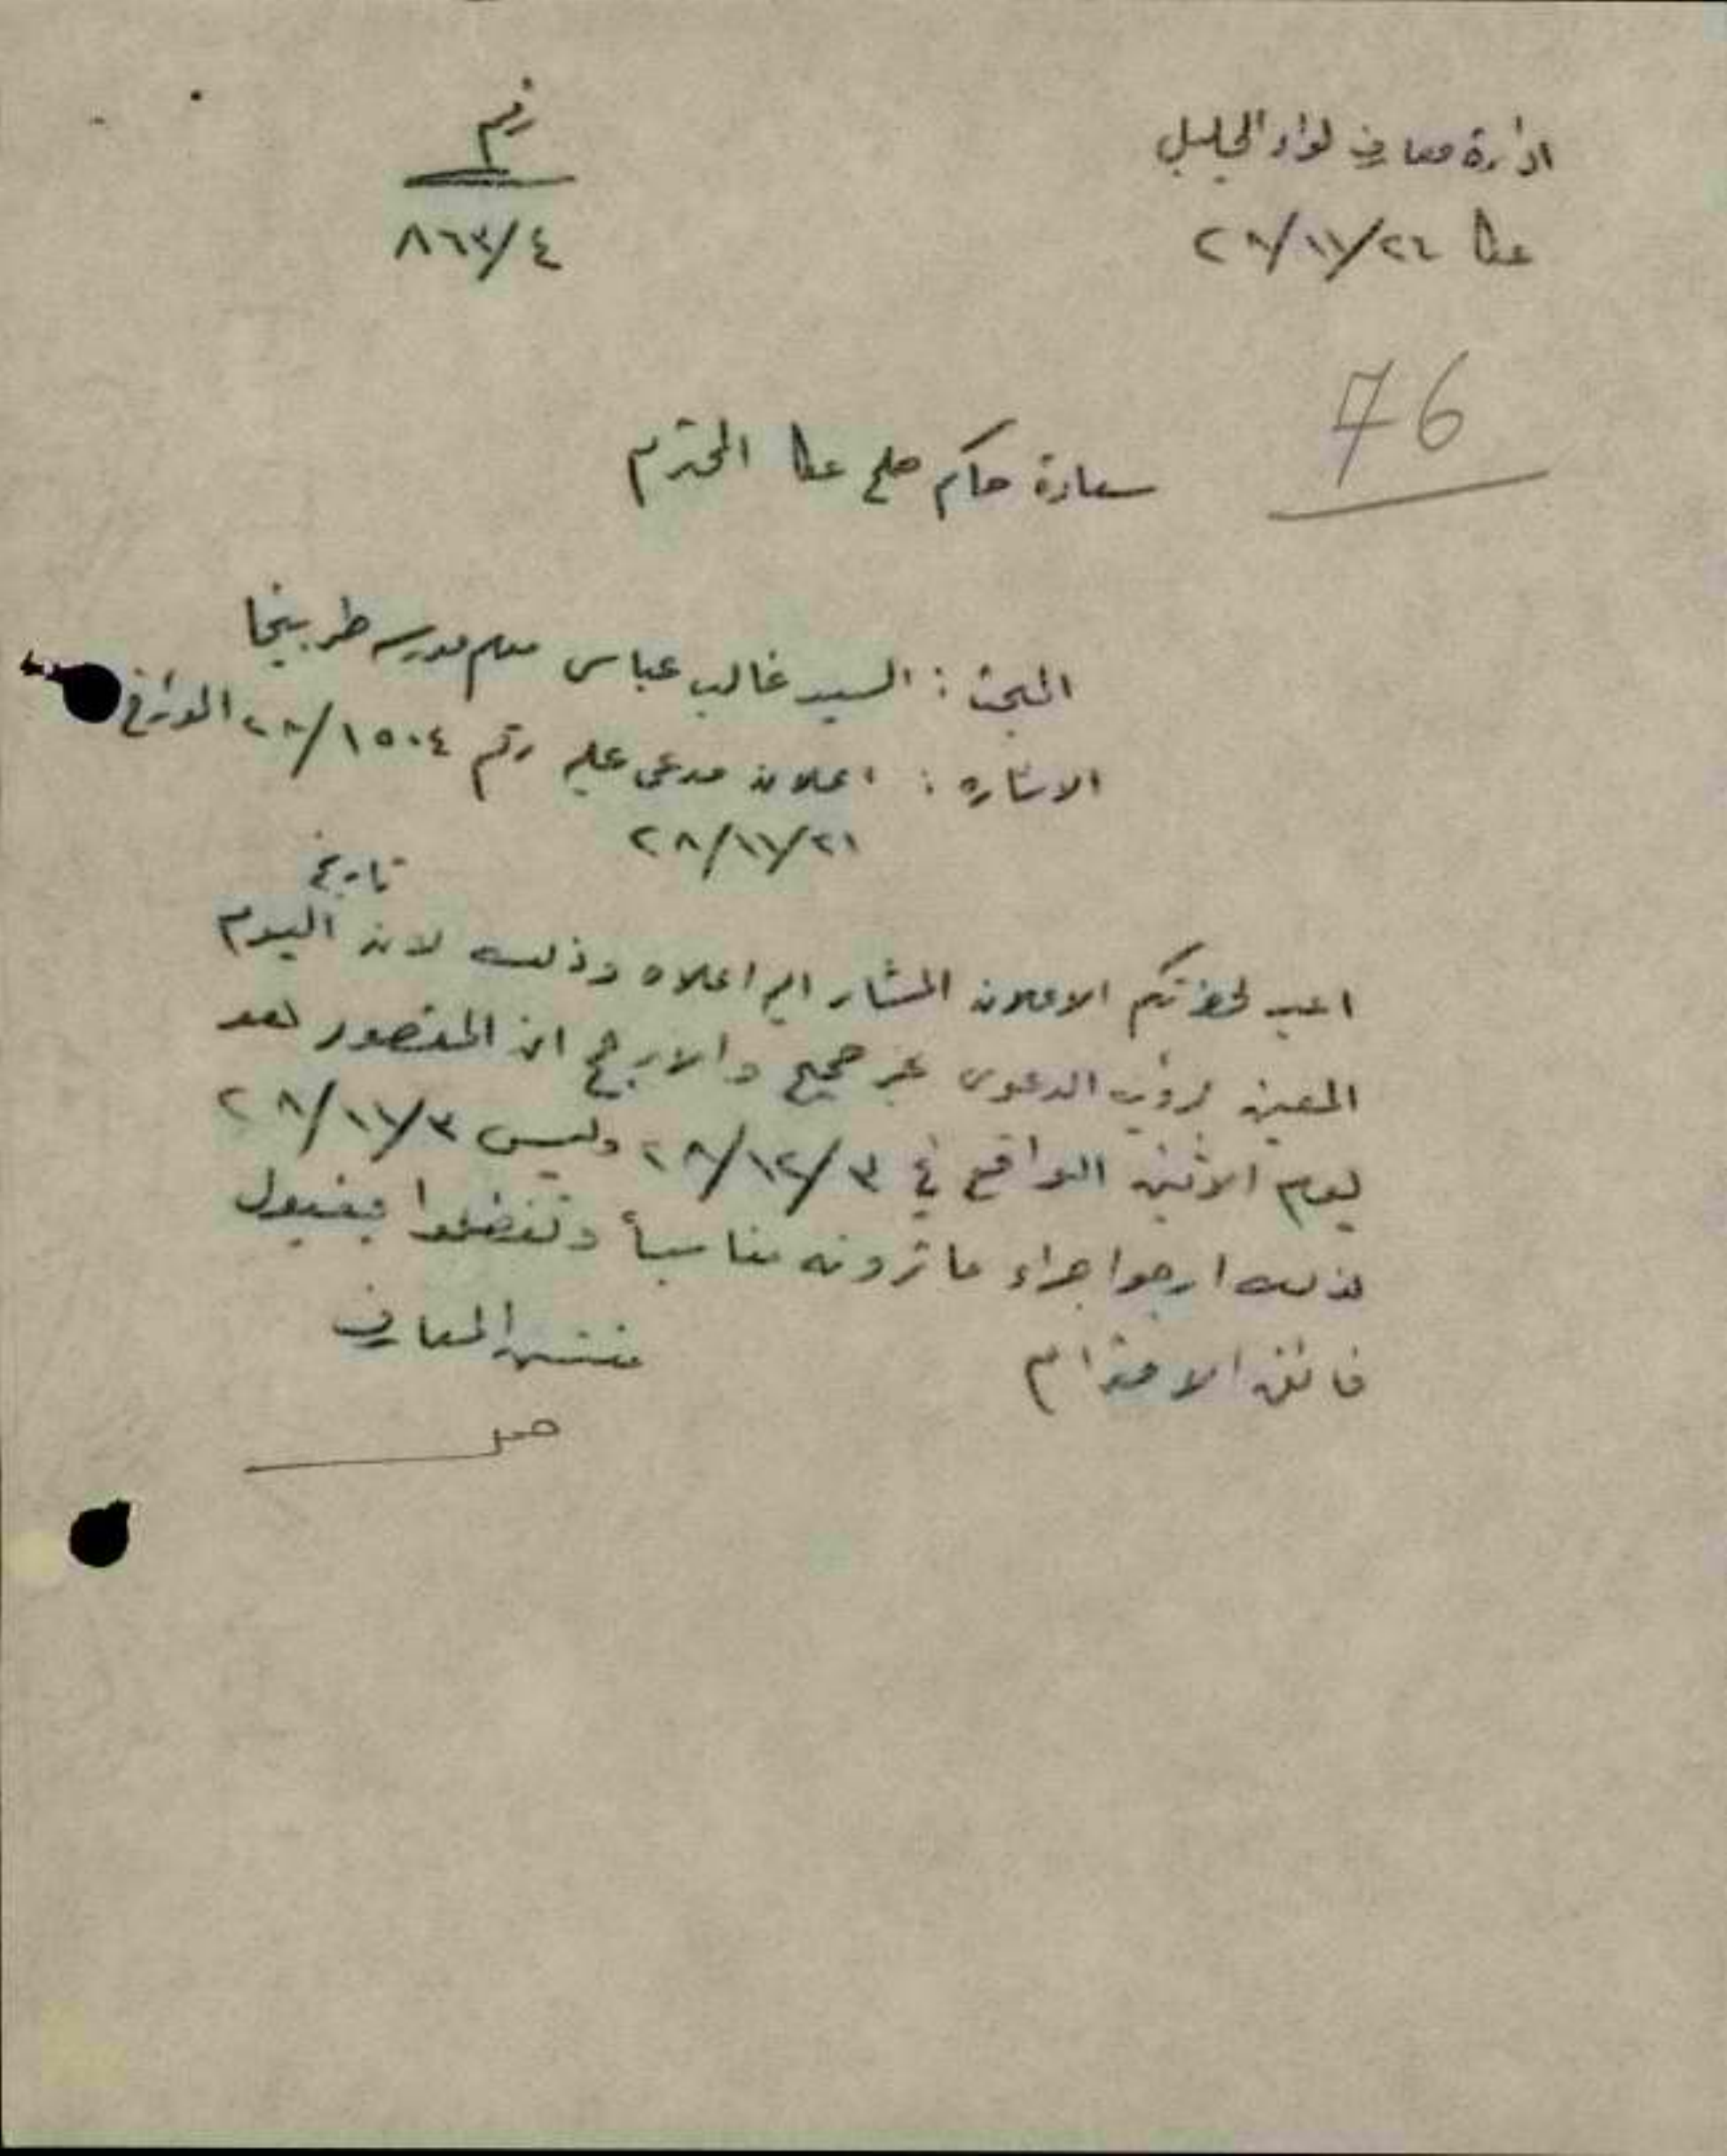 ادارة معارف لواء الجليل
عكا ٢٨/١١/٢٤
رقم
٨٦٣/٤
76
سعادة حاكم صلح عكا المحترم
المبحث : السيد غالب عباس معلم مدرسة طربيخا
الاشاره : اعلان مدعى عليه رقم ٢٨/١٥٠٤ المؤرخ
٢٨/١١/٢١
تاريخ
اعيد لحضرتكم الاعلان المشار اليه اعلاه وذلك لان اليوم
المعين لرؤية الدعوى غير صحيح والارجح ان المقصود هو
يوم الاثنين الواقع في ٢٨/١٢/٣ وليس ٢٨/١١/٣
لذلك ارجو اجراء ما ترونه مناسباً وتفضلوا بقبول
فائق الاحترام
مفتش المعارف